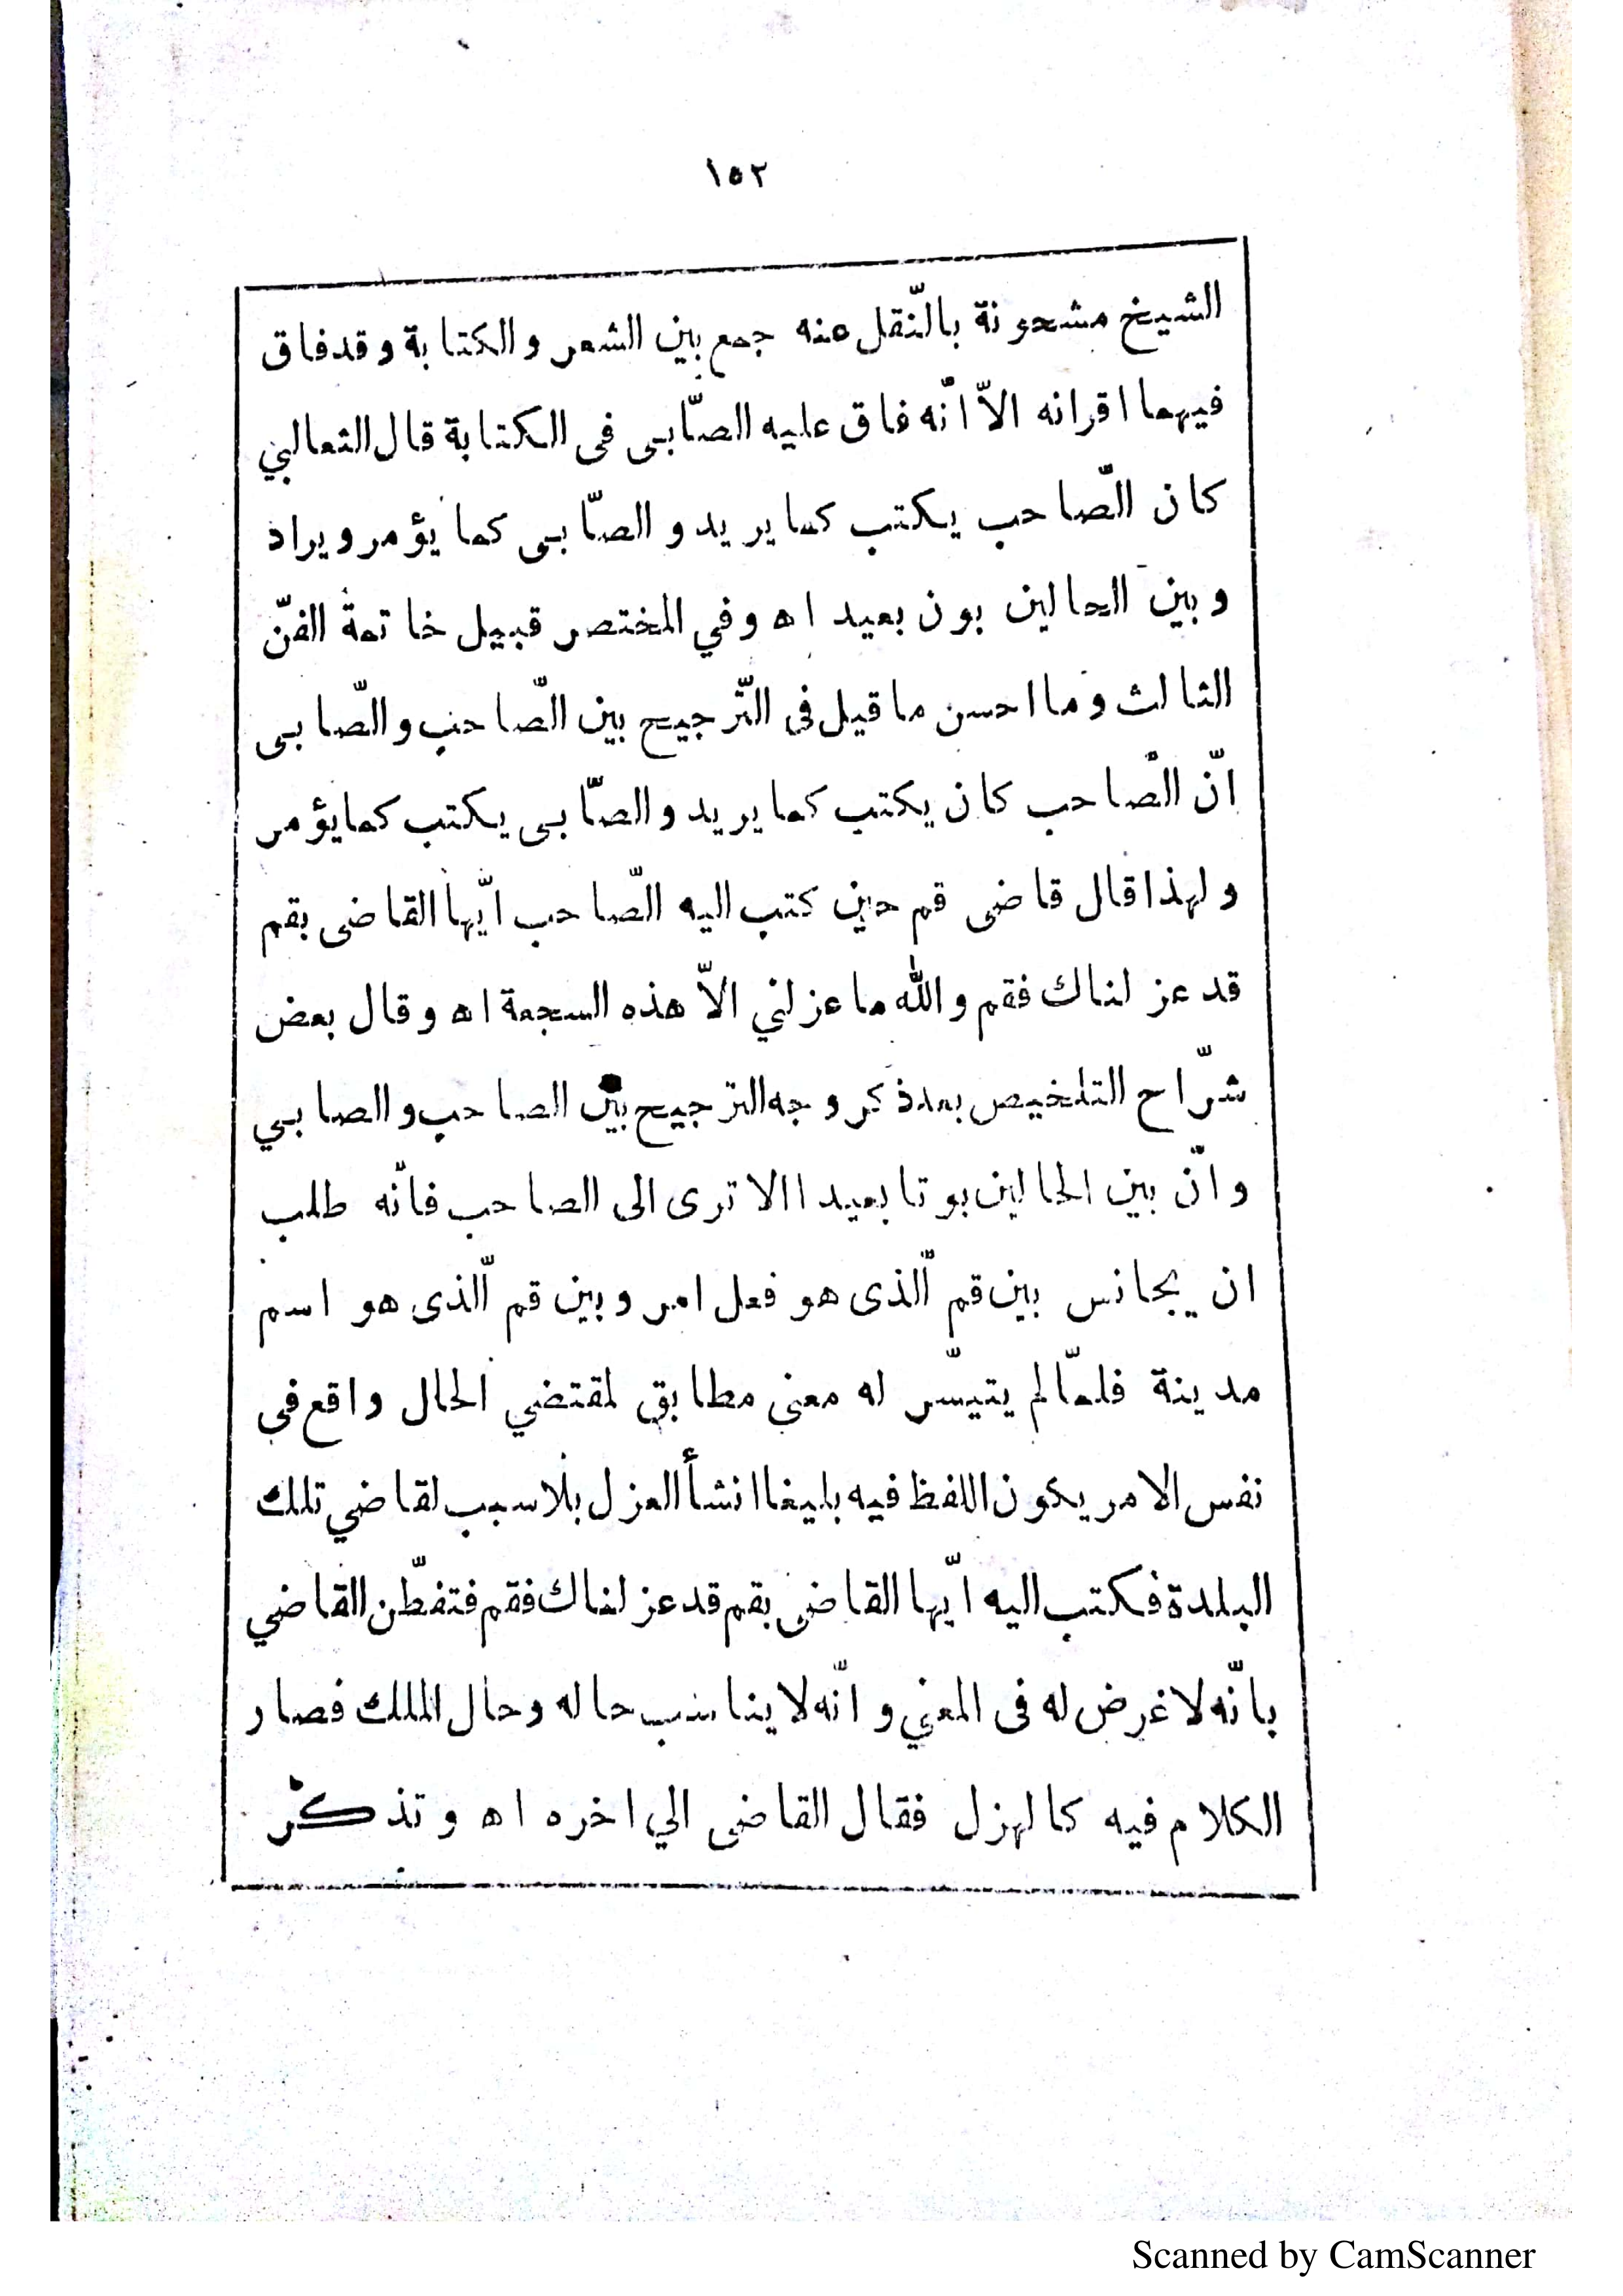 ١٥٢
الشيخ مشحونة بالنّقل عنه جمع بين الشعر والكتابة وقدفاق
فيهما اقرانه الاّ انّه فاق عليه الصّابى فى الكتابة قال الثعالبي
كان الصّاحب يكتب كما يريد و الصّابى كما يؤمر و يراد
و بين الحالين بون بعيد اه وفي المختصر قبيل خاتمة الفنّ
الثالث و ما احسن ما قيل فى التّرجيح بين الصّاحب و الصّابى
انّ الصّاحب كان يكتب كما يريد و الصّابى يكتب كما يؤمر
و لهذا قال قاضى قم حين كتب اليه الصّاحب ايّها القاضى بقم
قد عزلناك فقم و الله ما عزلني الاّ هذه السجعة اه و قال بعض
شرّاح التلخيص بعد ذكر وجه الترجيح بين الصاحب و الصابي
و انّ بين الحالين بوتا بعيدا الا ترى الى الصاحب فانّه طلب
ان يجانس بين قم الّذى هو فعل امر و بين قم الّذى هو اسم
مدينة فلمّا لم يتيسّر له معنى مطابق لمقتضي الحال واقع فى
نفس الامر يكون اللفظ فيه بليغا انشأ العزل بلا سبب لقاضي تلك
البلدة فكتب اليه ايّها القاضى بقم قد عزلناك فقم فتفطّن القاضي
بانّه لا غرض له فى المعني و انّه لا يناسب حاله و حال الملك فصار
الكلام فيه كالهزل فقال القاضى الي اخره اه و تذكّر
Scanned by CamScanner